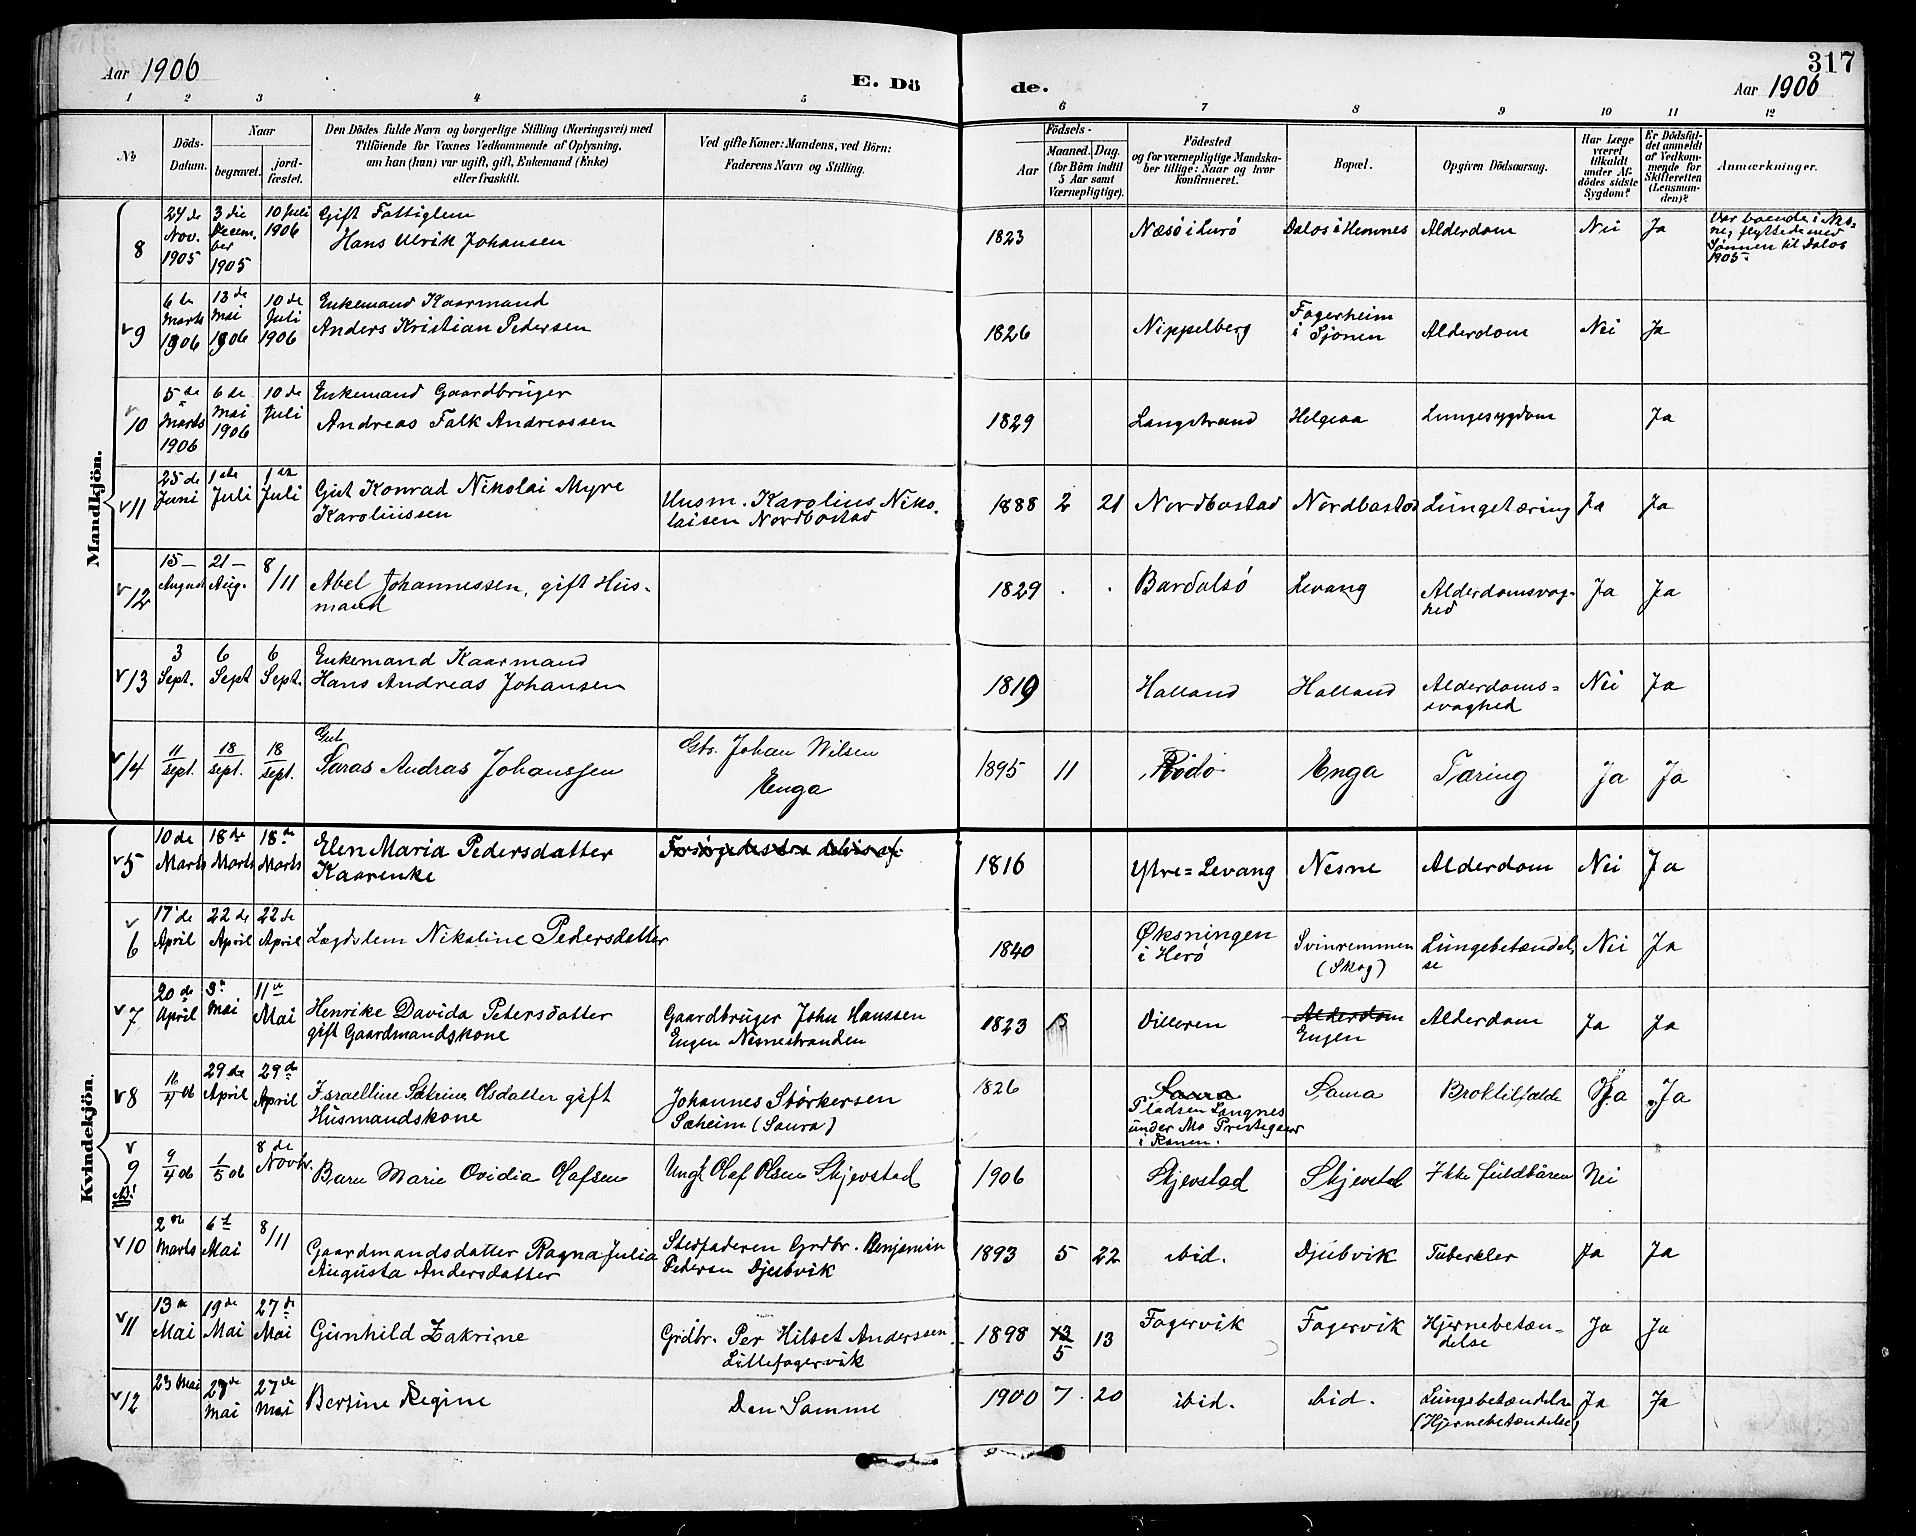 Aar 1906
E. Dö
de.
317
Aar 1906
1 2 3 4 5 6 7 8 9 10 11 12
No
Döds-
Datum.
Naar
begravet.
jord-
fæstet.
Den Dödes fulde Navn og borgerlige Stilling (Næringsvei) med
Tilföiende for Voxnes Vedkommende af Oplysning,
om han (hun) var ugift, gift, Enkemand (Enke)
eller fraskilt.
Ved gifte Koner: Mandens, ved Börn:
Faderens Navn og Stilling.
Födsels-
Aar
Maaned. Dag.
(for Börn indtil
5 Aar samt
Værnepligtige).
Födested
og for værnepligtige Mandska-
ber tillige: Naar og hvor
konfirmeret.
Bopæl.
Opgiven Dödsaarsag.
Har Læge
været
tilkaldt
under Af-
dödes sidste
Sygdom?
Er Dödsfal-
det anmeldt
af Vedkom-
mende for
Skifteretten
(Lensman-
den)?
Anmærkninger.
Mandkjön.
8
24 de
Nov.
1905
3 die
Decem-
ber
1905
10 Juli
1906
Gift Fattiglem
Hans Ulrik Johansen
1823
Næsö i Lurö
Dalos i Hemnes
Alderdom
Nei
Ja
Var boende i Nes-
ne, flyttede med
Sønnen til Dalos
1905.
9
6 te
Marts
1906
13 de
Mai
1906
10 de
Juli
1906
Enkemand Kaarmand
Anders Kristian Pedersen
1826
Nippelberg
Fagerheim
i Sjonen
Alderdom
Nei
Ja
10
5 de
Marts
1906
6 de
Mai
1906
10 de
Juli
Enkemand Gaardbruger
Andreas Falk Andreassen
1829
Langstrand
Helgeaa
Lungesygdom
Ja
11
25 de
Juni
1 de
Juli
1 de
Juli
Gut Konrad Nikolai Myre
Karoliussen
Husm. Karolius Niko-
laisen Nordbostad
1888 2 21
Nordbostad
Nordbostad
Lungetæring
Ja
Ja
12
15 —
August
21 —
Aug.
8/11
Abel Johannessen, gift Hus-
mand
1829 . .
Bardalsö
Levang
Alderdomsvag-
hed
Ja
Ja
13
3
Sept.
6
Sept
6
Sept.
Enkemand Kaarmand
Hans Andreas Johansen
1819
Halland
Halland
Alderdoms-
svaghed
Nei
Ja
14
11
sept.
18
sept.
18
sept.
Gut
Saras Andras Johanssen
Gbr. Johan Nilsen
Enga
1895 11
Rödö
Enga
Tæring
Ja
Ja
Kvindekjön.
5
10 de
Marts
18 de
Marts
18 de
Marts
Elen Maria Pedersdatter
Kaarenke
1816
Ytre=Levang
Nesne
Alderdom
Nei
Ja
6
17 de
April
22 de
April
22 de
April
Lægdslem Nikoline Pedersdatter
1840
Øksningen
i Herö
Svinremmen
(Skog)
Lungebetændel-
se
Nei
Ja
7
20 de
April
Mai
11 te
Mai
Henrike Davida Petersdatter
gift Gaardmandskone
Gaardbruger John Hanssen
Engen Nesnestranden
1823
Villeren
Alderdom
Engen
Alderdom
Ja
Ja
8
16/4 06
29 de
April
29 de
April
Israelline Satrine Olsdatter gift
Husmandskone
Johannes Størkersen
Sæheim (Saura)
1826
Saura
Pladsen Langnes
under Mo Prestegaard
i Ranen.
Saura
Broktilfælde
Ja
Ja
9
9/4 06
1/5 06
8 de
Novbr.
Barn Marie Ovidia Olafsen
Ungk Olaf Olsen Skjevstad
1906
Skjevstad
Skjevstad
Ikke fuldbåren
Nei
10
2 den
Marts
6 te
Mai
8/11
Gaardmandsdatter Ragna Julia
Augusta Andersdatter
Stedfaderen Grdbr. Benjamin
Pedersen Djubvik
1893 5 22
ibid.
Djubvik
Tuberkler
Ja
Ja
11
13 de
Mai
19 de
Mai
27 de
Mai
Gunhild Zakrine
Grdbr. Per Hilset Anderssen
Lillefagervik
1898 5 13
Fagervik
Fagervik
Hjernebetæn-
delse
Ja
Ja
12
23 Mai
27 de
Mai
27 de
Mai
Bersine Regine
Den Samme
1900 7 20
ibid.
ibid.
Lungebetændelse
(Hjernebetændelse)
Ja
Ja